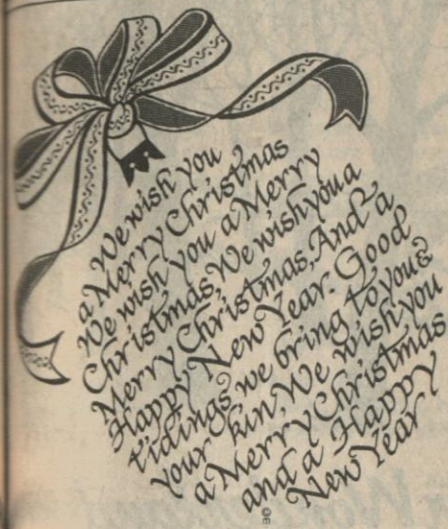 We wish you
a Merry Christmas
We wish you a Merry
Christmas, We wish you a
Merry Christmas, And a
Happy New Year. Good
tidings, we bring to you &
your kin, We wish you
a Merry Christmas
and a Happy
New Year